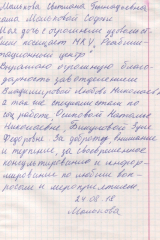 Малихова Светлана Геннадьевна
мама Малоховой Софии
Моя дочь с огромным удовольст-
вием посещает НКУ „Реабили-
тационный центр“
Выражаю огромную благо-
дарность зав отделением
Владимировой Любови Николаевне
а так же специалистам по
соц работе, Николаевне,
Федоровне. За доброту, внимание
и терпение, за своевременное
консультирование и инфор-
мирование по любым воп-
росам и мероприятиям.
24.08.18